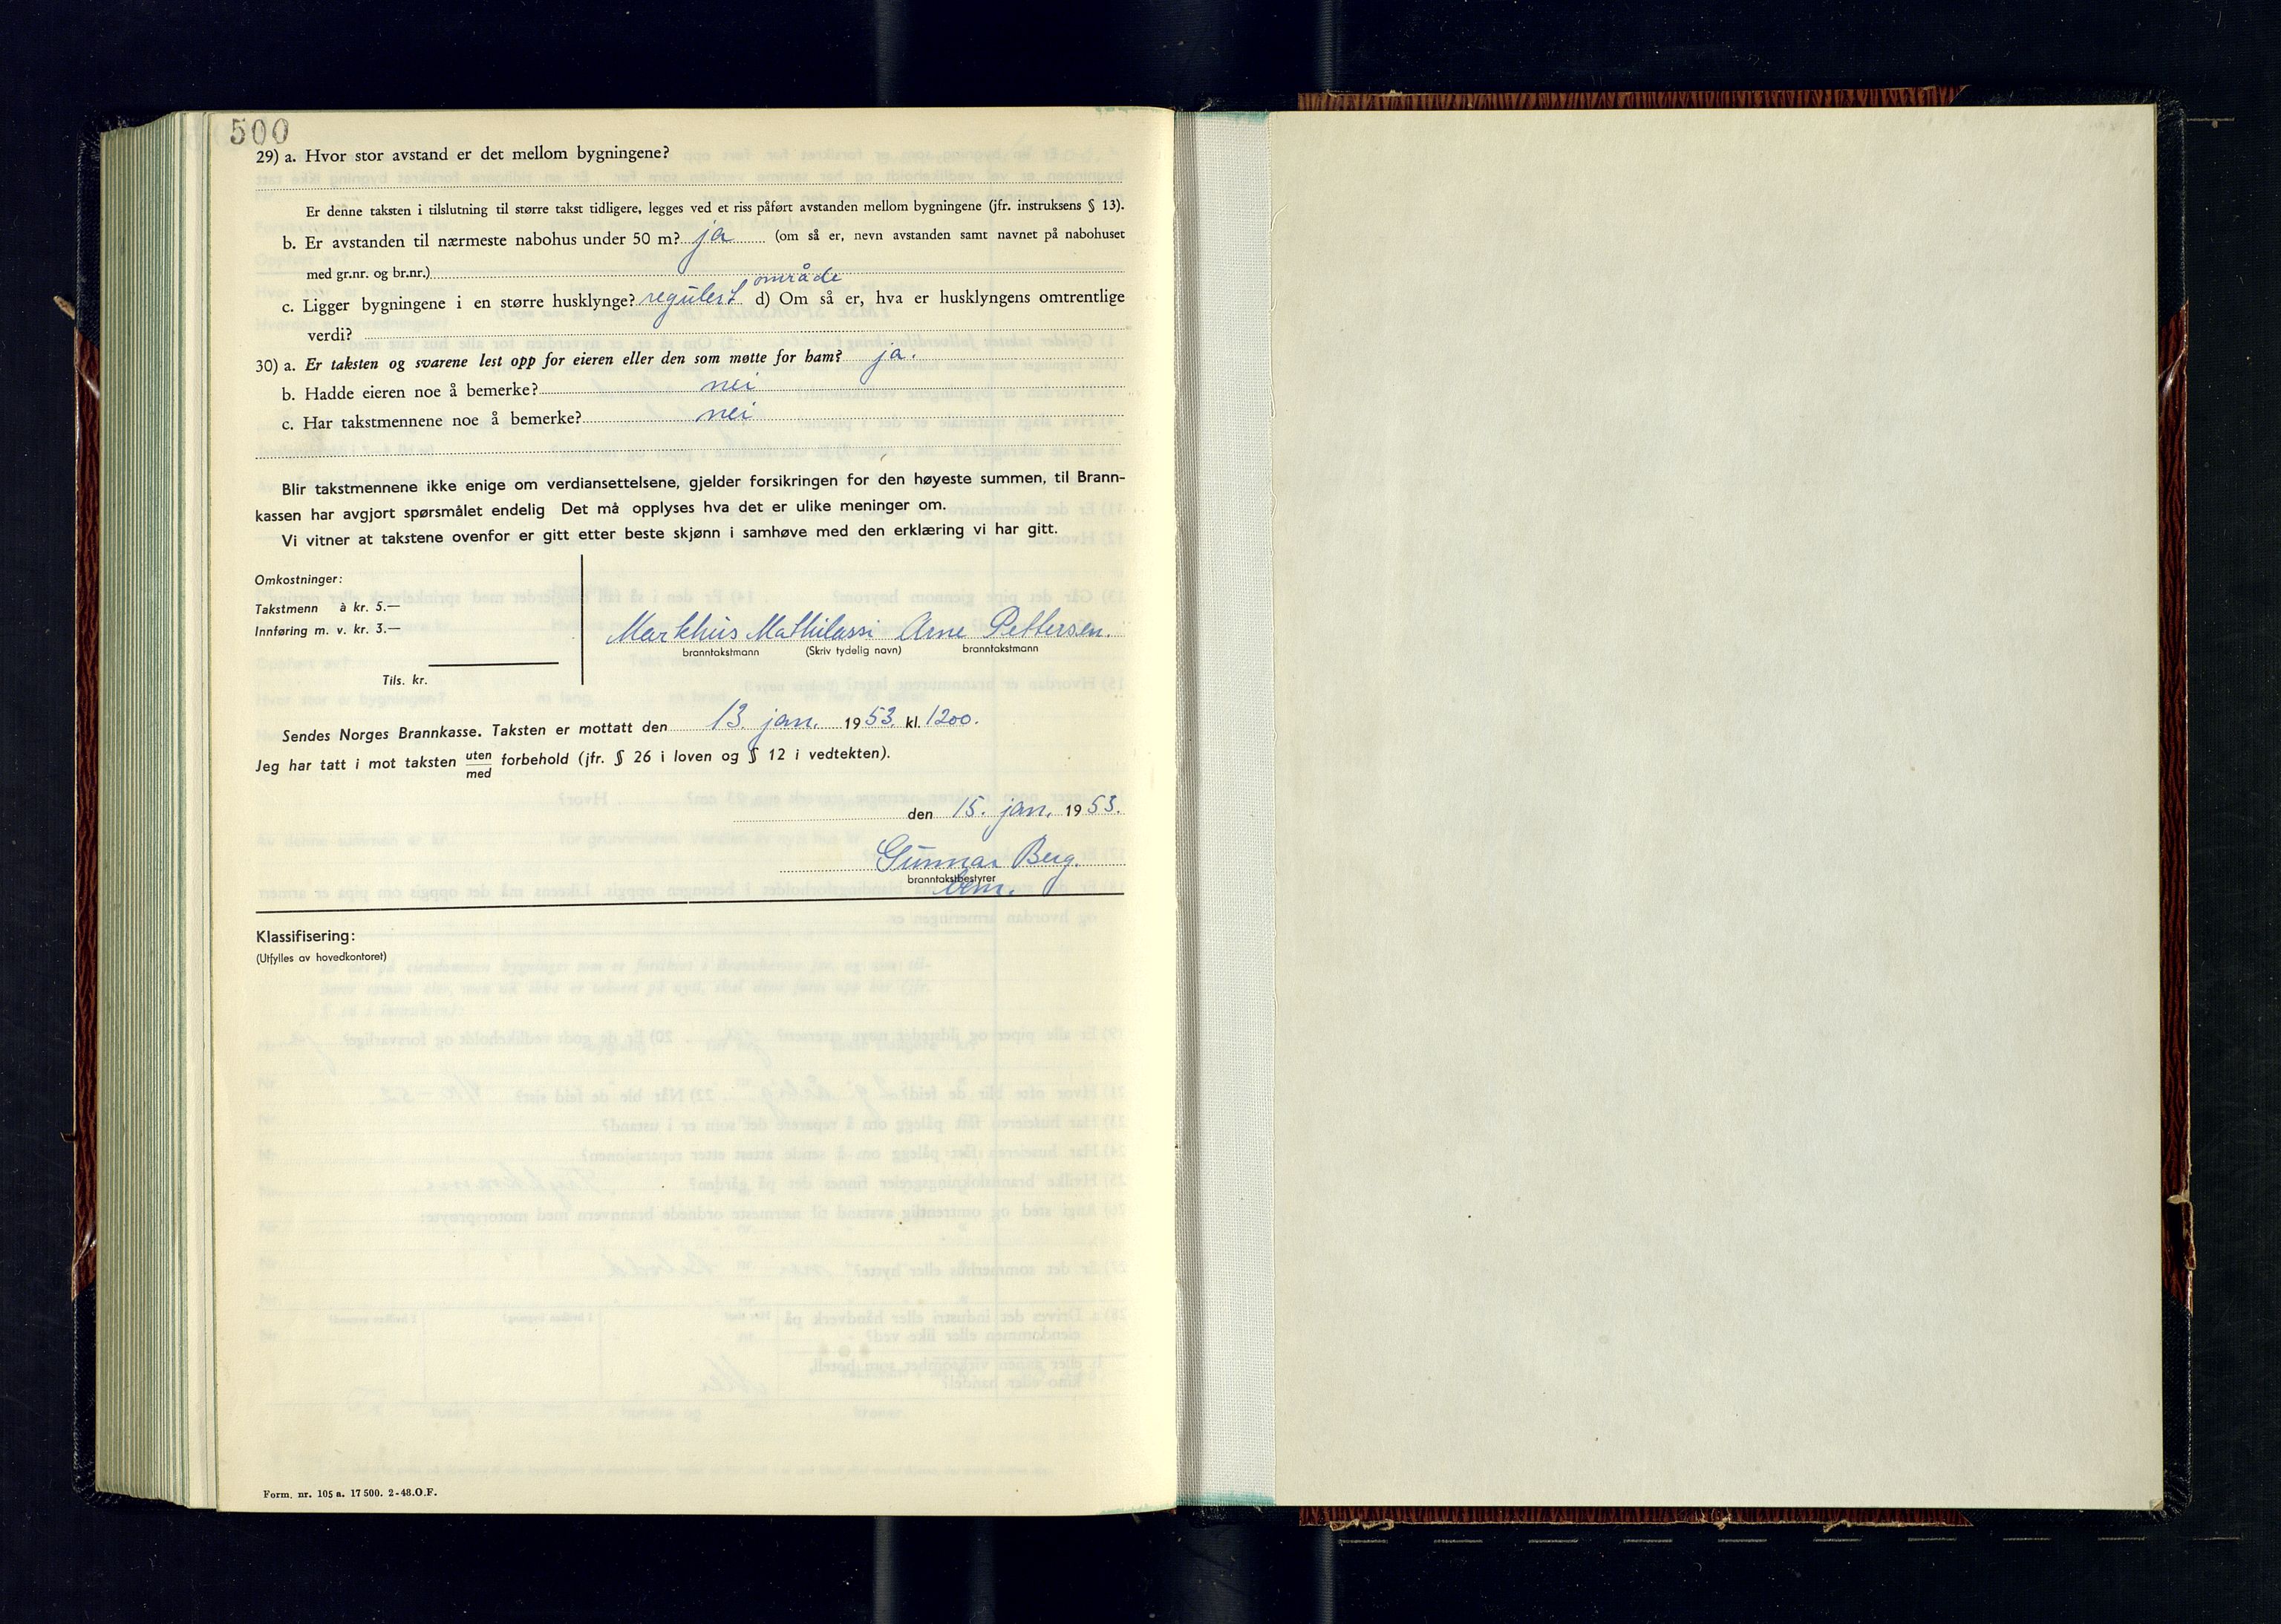 500
29) a. Hvor stor avstand er det mellom bygningene?
Er denne taksten i tilslutning til større takst tidligere, legges ved et riss påført avstanden mellom bygningene (jfr. instruksens § 13).
b. Er avstanden til nærmeste nabohus under 50 m? ja (om så er, nevn avstanden samt navnet på nabohuset
med gr.nr. og br.nr.)
område
c. Ligger bygningene i en større husklynge? regulert d) Om så er, hva er husklyngens omtrentlige
verdi?
30) a. Er taksten og svarene lest opp for eieren eller den som møtte for ham? ja.
b. Hadde eieren noe å bemerke? nei
c. Har takstmennene noe å bemerke? nei
Blir takstmennene ikke enige om verdiansettelsene, gjelder forsikringen for den høyeste summen, til Brann-
kassen har avgjort spørsmålet endelig Det må opplyses hva det er ulike meninger om.
Vi vitner at takstene ovenfor er gitt etter beste skjønn i samhøve med den erklæring vi har gitt.
Omkostninger:
Takstmenn à kr. 5.—
Innføring m. v. kr. 3.—
Tils. kr.
Markhus Mathilassi Arne Pettersen.
branntakstmann (Skriv tydelig navn) branntakstmann
Sendes Norges Brannkasse. Taksten er mottatt den 13. jan. 1953. kl. 1200.
Jeg har tatt i mot taksten uten/med forbehold (jfr. § 26 i loven og § 12 i vedtekten).
den 15. jan. 1953.
Gunnar Berg.
branntakstbestyrer
Klassifisering:
(Utfylles av hovedkontoret)
Form. nr. 105 a. 17 500. 2-48.O.F.